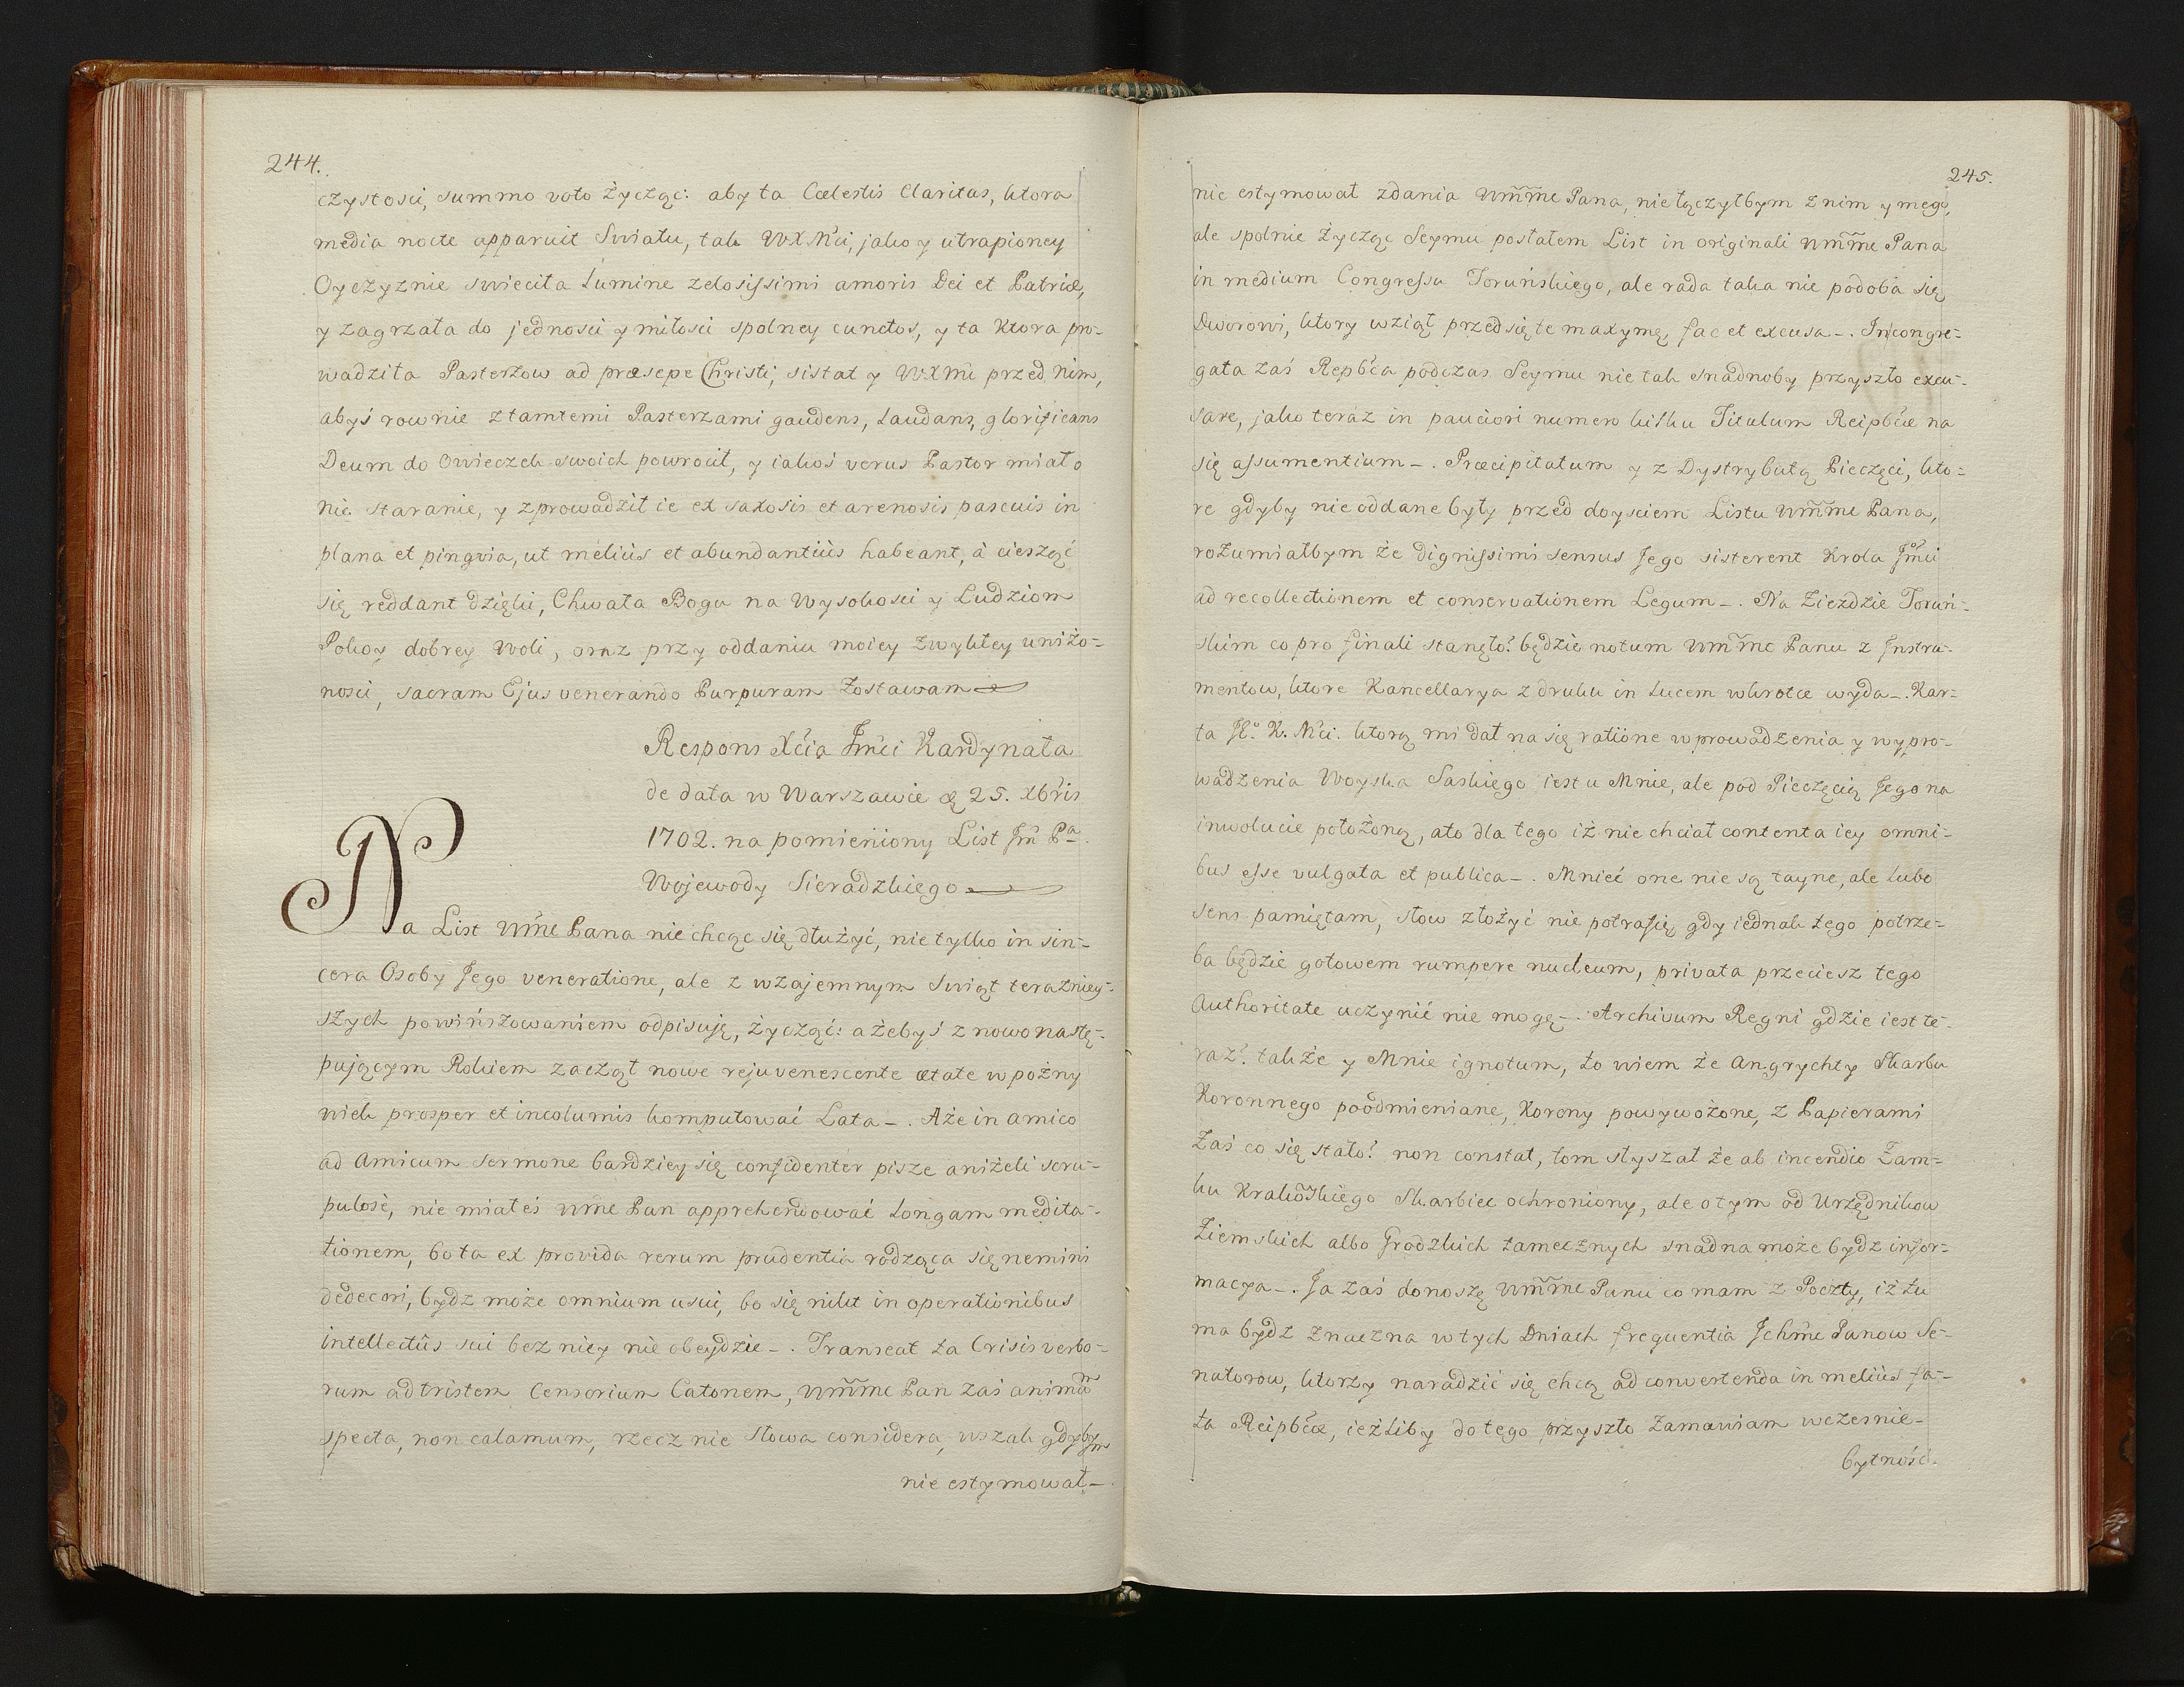 244.
czystosci, summo voto życząc: aby ta Cœlestis Claritas, ktora
media nocte apparuit Swiatu, tak WXMći, jako y utrapioney
Oyczyznie swieciła Lumine zelosissimi amoris Dei et Patriæ,
y zagrzała do jednosci y miłosci spolney cunctos, y ta ktora pro-
wadziła Pasterzow ad præsepe Christi, sistat y WXMći przed nim,
abyś rownie z tamtemi Pasterzami gaudens, Laudans, glorificans
Deum do Owieczek swoich powrocił, y iakoś verus Pastor miał o
nie staranie, y zprowadził ie ex saxosis et arenosis pascuis in
plana et pingvia, ut meliùs et abundantiùs habeant, à ciesząć
się reddant dzięki, Chwała Bogu na Wysokosci y Ludziom
Pokoy dobrey Woli, oraz przy oddaniu moiey zwykłey uniżo-
nosci, sacram Ejus venerando Purpuram Zostawam
Respons Xćia Jmći Kardynała
de data w Warszawie d. 25. Xbris
1702. na pomieniony List Jm̃ Pa
Wojewody Sieradzkiego
Na List Wm̃e Pana nie chcąc się dłużyć, nie tylko in sin-
cera Osoby Jego veneratione, ale z wzajemnym Swiąt teraźniey-
szych powińszowaniem odpisuję, życząć: ażebyś z nowo nastę-
pującym Rokiem zaczął nowe rejuvenescente ætate w pożny
wiek prosper et incolumis komputować Lata -. Aże in amico
ad Amicum sermone bardziey się confidenter pisze aniżeli scru-
pulosè, nie miałeś Wm̃e Pan apprehendować Longam medita-
tionem, bo ta ex provida rerum prudentia rodząca się nemini
dedecori, bydz może omnium usui, bo się nikt in operationibus
intellectûs sui bez niey nie obeydzie -. Transeat ta Crisis verbo-
rum ad tristem Censorium Catonem, Wm̃m̃e Pan zaś animam
specta, non calamum, rzecz nie słowa considera, wszak gdybym
nie estymował -
245.
nie estymował zdania Wm̃m̃e Pana, nie łączyłbym z nim y mego,
ale spolnie życząc Seymu posłałem List in originali Wm̃m̃e Pana
in medium Congressu Toruńskiego, ale rada taka nie podoba się
Dworowi, ktory wziął przed się te maxymę, fac et excusa -. In congre-
gata zaś Repbća podczas Seymu nie tak snadnoby przyszło excu-
sare, jako teraz in pauciori numero kilku Titulum Reipbćæ na
się assumentium -. Præcipitatum y z Dystrybutą Pieczęci, kto-
re gdyby nie oddane były przed doysciem Listu Wm̃m̃e Pana,
rozumiałbym że dignissimi sensus Jego sisterent Krola Jmći
ad recollectionem et conservationem Legum -. Na Zieździe Toruń-
skim co pro finali stanęło? będzie notum Wm̃m̃e Panu z Instru-
mentow, ktore Kancellarya z druku in Lucem wkrotce wyda -. Kar-
ta Jo. K. Mći. ktorą mi dał na się ratione wprowadzenia y wypro-
wadzenia Woyska Saskiego iest u Mnie, ale pod Pieczęcią Jego na
inwolucie położoną, a to dla tego iż nie chciał contenta iey omni-
bus esse vulgata et publica -. Mnieć one nie są tayne, ale lubo
sens pamiętam, słow złożyć nie potrafię gdy iednak tego potrze-
ba będzie gotowem rumpere nucleum, privata przeciesz tego
Authoritate uczynić nie mogę -. Archivum Regni gdzie iest te-
raz? także y Mnie ignotum, to wiem że Angrychty Skarbu
Koronnego poodmieniane, Korony powywożone, z Papierami
Zaś co się stało? non constat, tom słyszał że ab incendio Zam-
ku Krakowskiego Skarbiec ochroniony, ale o tym od Urzędnikow
Ziemskich albo Grodzkich tamecznych snadna może bydz infor-
macya -. Ja zaś donoszę Wm̃m̃e Panu co mam z Poczty, iż tu
ma bydz znaczna w tych Dniach frequentia Jchm̃e Panow Se-
natorow, ktorzy naradzić się chcą ad convertenda in meliùs fa-
ta Reipbćæ, ieżliby do tego przyszło Zamawiam wczesnie -
bytność.